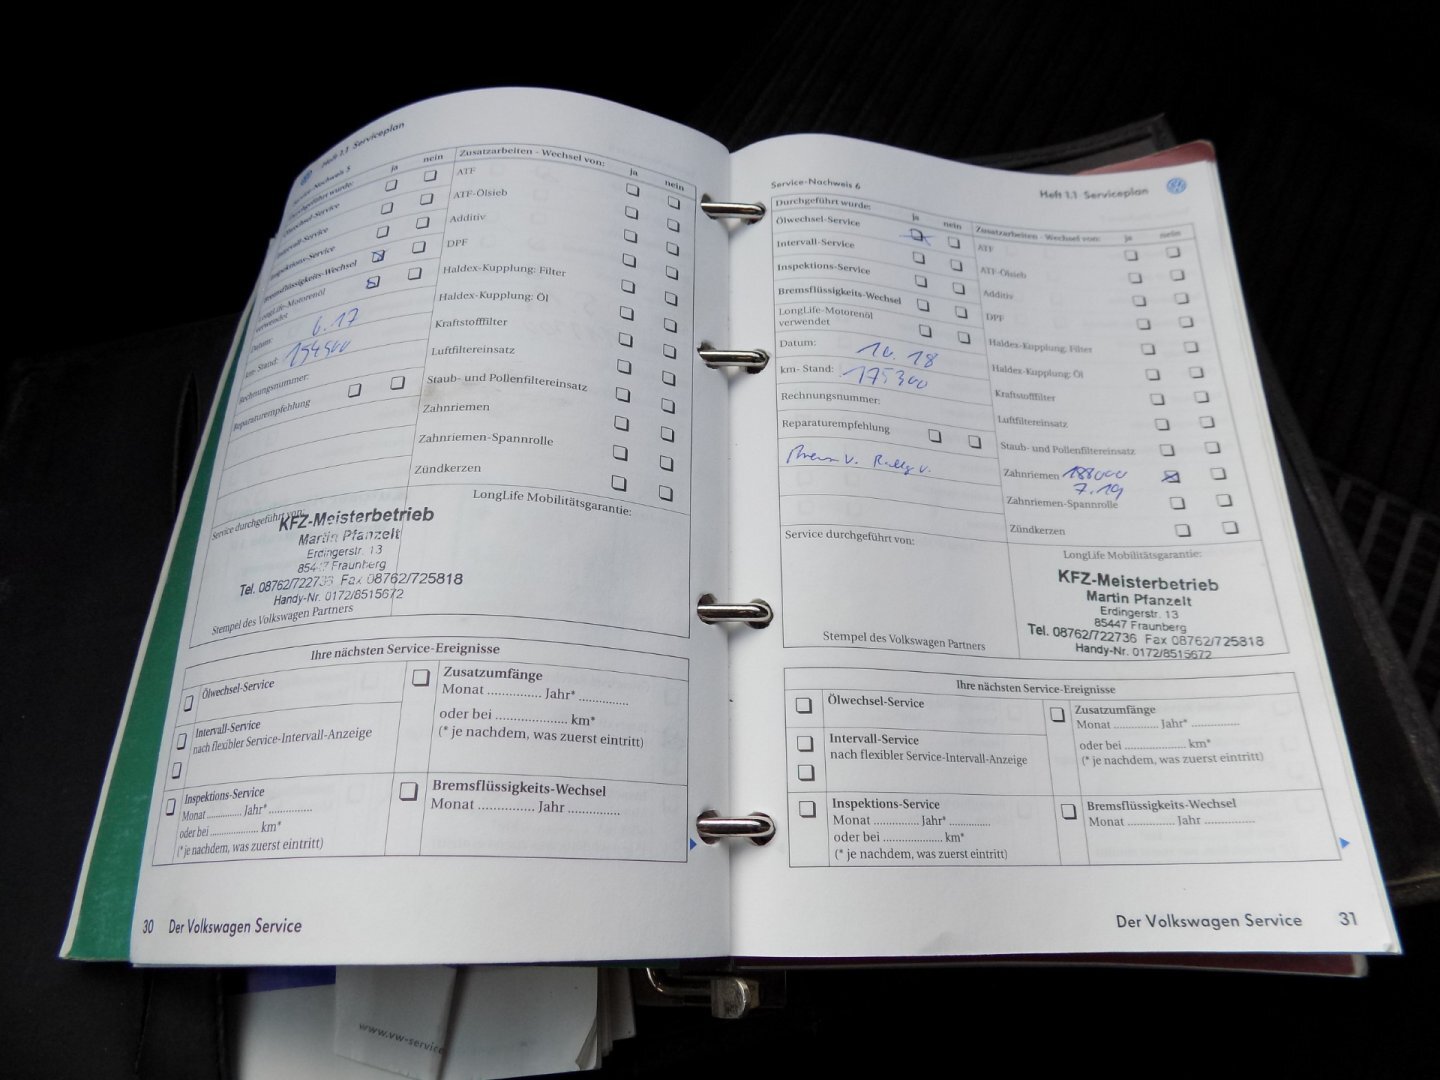 Heft 1.1 Serviceplan
Service-Nachweis 5
Durchgeführt wurde:
ja
nein
Ölwechsel-Service
Intervall-Service
Inspektions-Service
Bremsflüssigkeits-Wechsel
LongLife-Motorenöl
verwendet
Datum:
6.17
km- Stand: 154500
Rechnungsnummer:
Reparaturempfehlung
Zusatzarbeiten - Wechsel von:
ja
nein
ATF
ATF-Ölsieb
Additiv
DPF
Haldex-Kupplung: Filter
Haldex-Kupplung: Öl
Kraftstofffilter
Luftfiltereinsatz
Staub- und Pollenfiltereinsatz
Zahnriemen
Zahnriemen-Spannrolle
Zündkerzen
LongLife Mobilitätsgarantie:
Service durchgeführt von:
KFZ-Meisterbetrieb
Martin Pfanzelt
Erdingerstr. 13
85447 Fraunberg
Tel. 08762/722736 Fax 08762/725818
Handy-Nr. 0172/8515672
Stempel des Volkswagen Partners
Ihre nächsten Service-Ereignisse
Ölwechsel-Service
Intervall-Service
nach flexibler Service-Intervall-Anzeige
Inspektions-Service
Monat ............ Jahr* .............
oder bei .................. km*
(* je nachdem, was zuerst eintritt)
Zusatzumfänge
Monat ............... Jahr* ..............
oder bei .................... km*
(* je nachdem, was zuerst eintritt)
Bremsflüssigkeits-Wechsel
Monat ............... Jahr ..............
30 Der Volkswagen Service
Service-Nachweis 6
Heft 1.1 Serviceplan
Durchgeführt wurde:
ja
nein
Ölwechsel-Service
Intervall-Service
Inspektions-Service
Bremsflüssigkeits-Wechsel
LongLife-Motorenöl
verwendet
Datum: 10. 18
km- Stand: 175300
Rechnungsnummer:
Reparaturempfehlung
Zusatzarbeiten - Wechsel von:
ja
nein
ATF
ATF-Ölsieb
Additiv
DPF
Haldex-Kupplung: Filter
Haldex-Kupplung: Öl
Kraftstofffilter
Luftfiltereinsatz
Staub- und Pollenfiltereinsatz
Zahnriemen 188000
7.19
Zahnriemen-Spannrolle
Zündkerzen
Service durchgeführt von:
Stempel des Volkswagen Partners
LongLife Mobilitätsgarantie:
KFZ-Meisterbetrieb
Martin Pfanzelt
Erdingerstr. 13
85447 Fraunberg
Tel. 08762/722736 Fax 08762/725818
Handy-Nr. 0172/8515672
Ihre nächsten Service-Ereignisse
Ölwechsel-Service
Intervall-Service
nach flexibler Service-Intervall-Anzeige
Inspektions-Service
Monat ............... Jahr* .............
oder bei .................... km*
(* je nachdem, was zuerst eintritt)
Zusatzumfänge
Monat ............... Jahr* ..............
oder bei .................... km*
(* je nachdem, was zuerst eintritt)
Bremsflüssigkeits-Wechsel
Monat ............... Jahr ...............
Der Volkswagen Service 31
www.vw-service